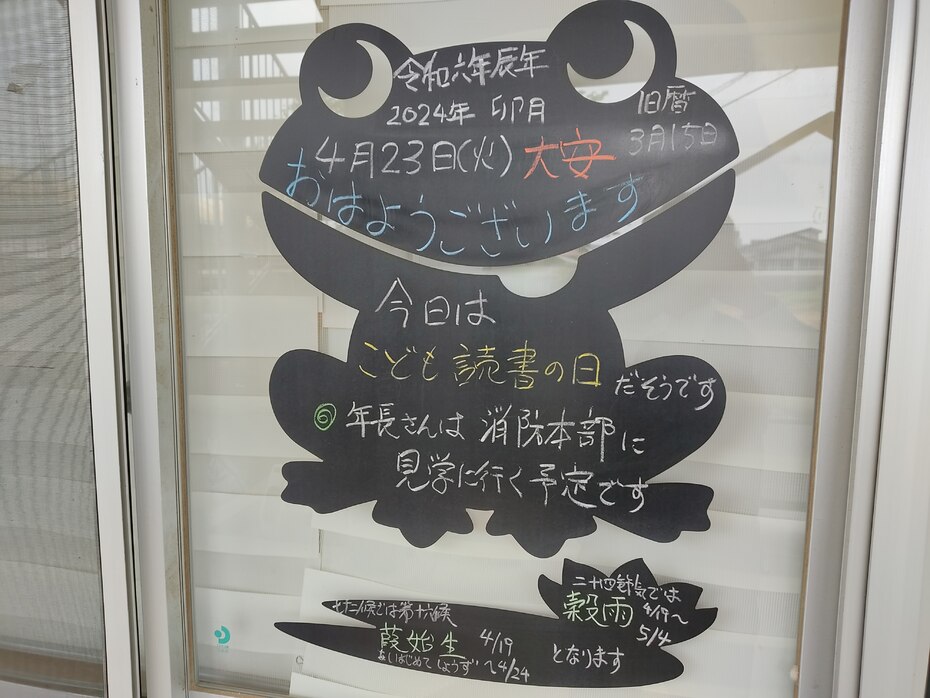 令和六年辰年
2024年 卯月
旧暦
3月15日
4月23日(火) 大安
おはようございます
今日は
こども読書の日
だそうです
⑥ 年長さんは 消防本部に
見学に行く予定です
二十四節気では
穀雨 4/19～
5/4
となります
七十二候では第十六候
葭始生 4/19
あしはじめてしょうず ～4/24